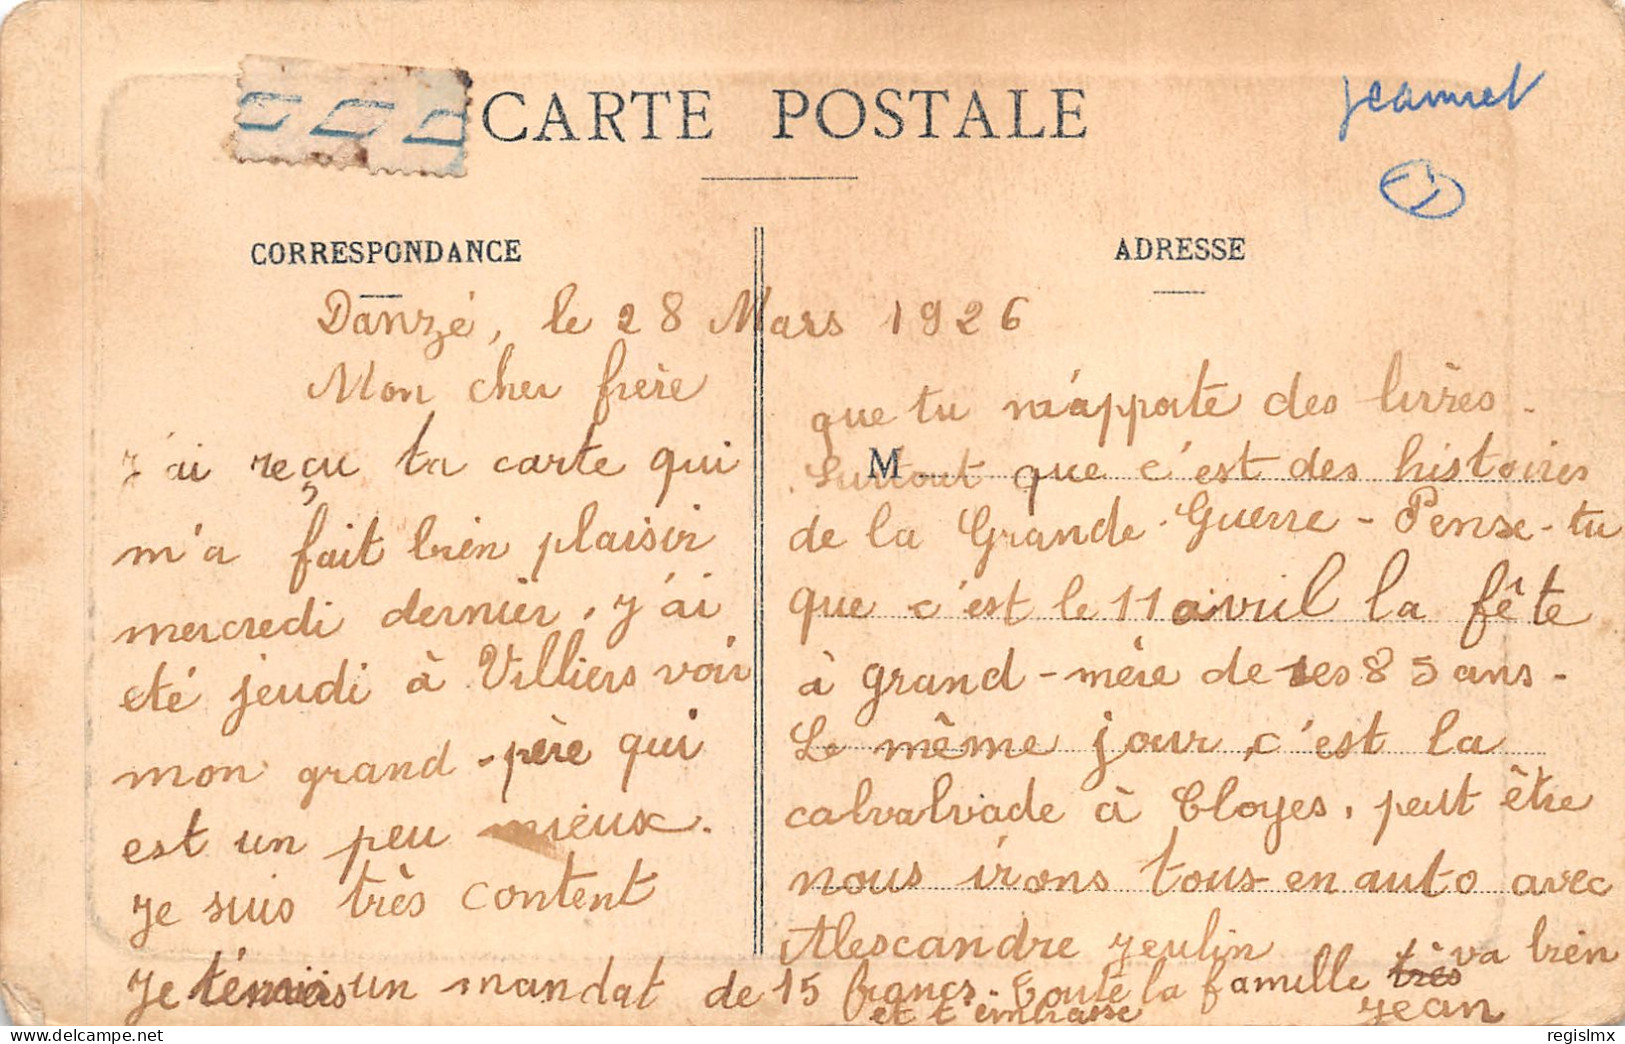 CARTE POSTALE
Jeannet
CORRESPONDANCE
ADRESSE
Danzé, le 28 Mars 1926
Mon cher frère
J'ai reçu ta carte qui
m'a fait bien plaisir
mercredi dernier. J'ai
eté jeudi à Villiers voir
mon grand-père qui
est un peu mieux.
Je suis très content
que tu m'apporte des livres.
M
Surtout que c'est des histoires
de la Grande Guerre - Pense-tu
que c'est le 11 avril la fête
à grand-mère de ses 85 ans.
Le même jour, c'est la
calvalvade à Cloyes, peut être
nous irons tous en auto avec
Alescandre Jeulin
Je un mandat de 15 francs. Toute la famille très va bien
et t'embrasse
Jean
regislmx